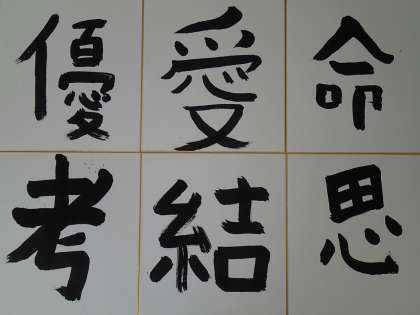 優愛命
考結思